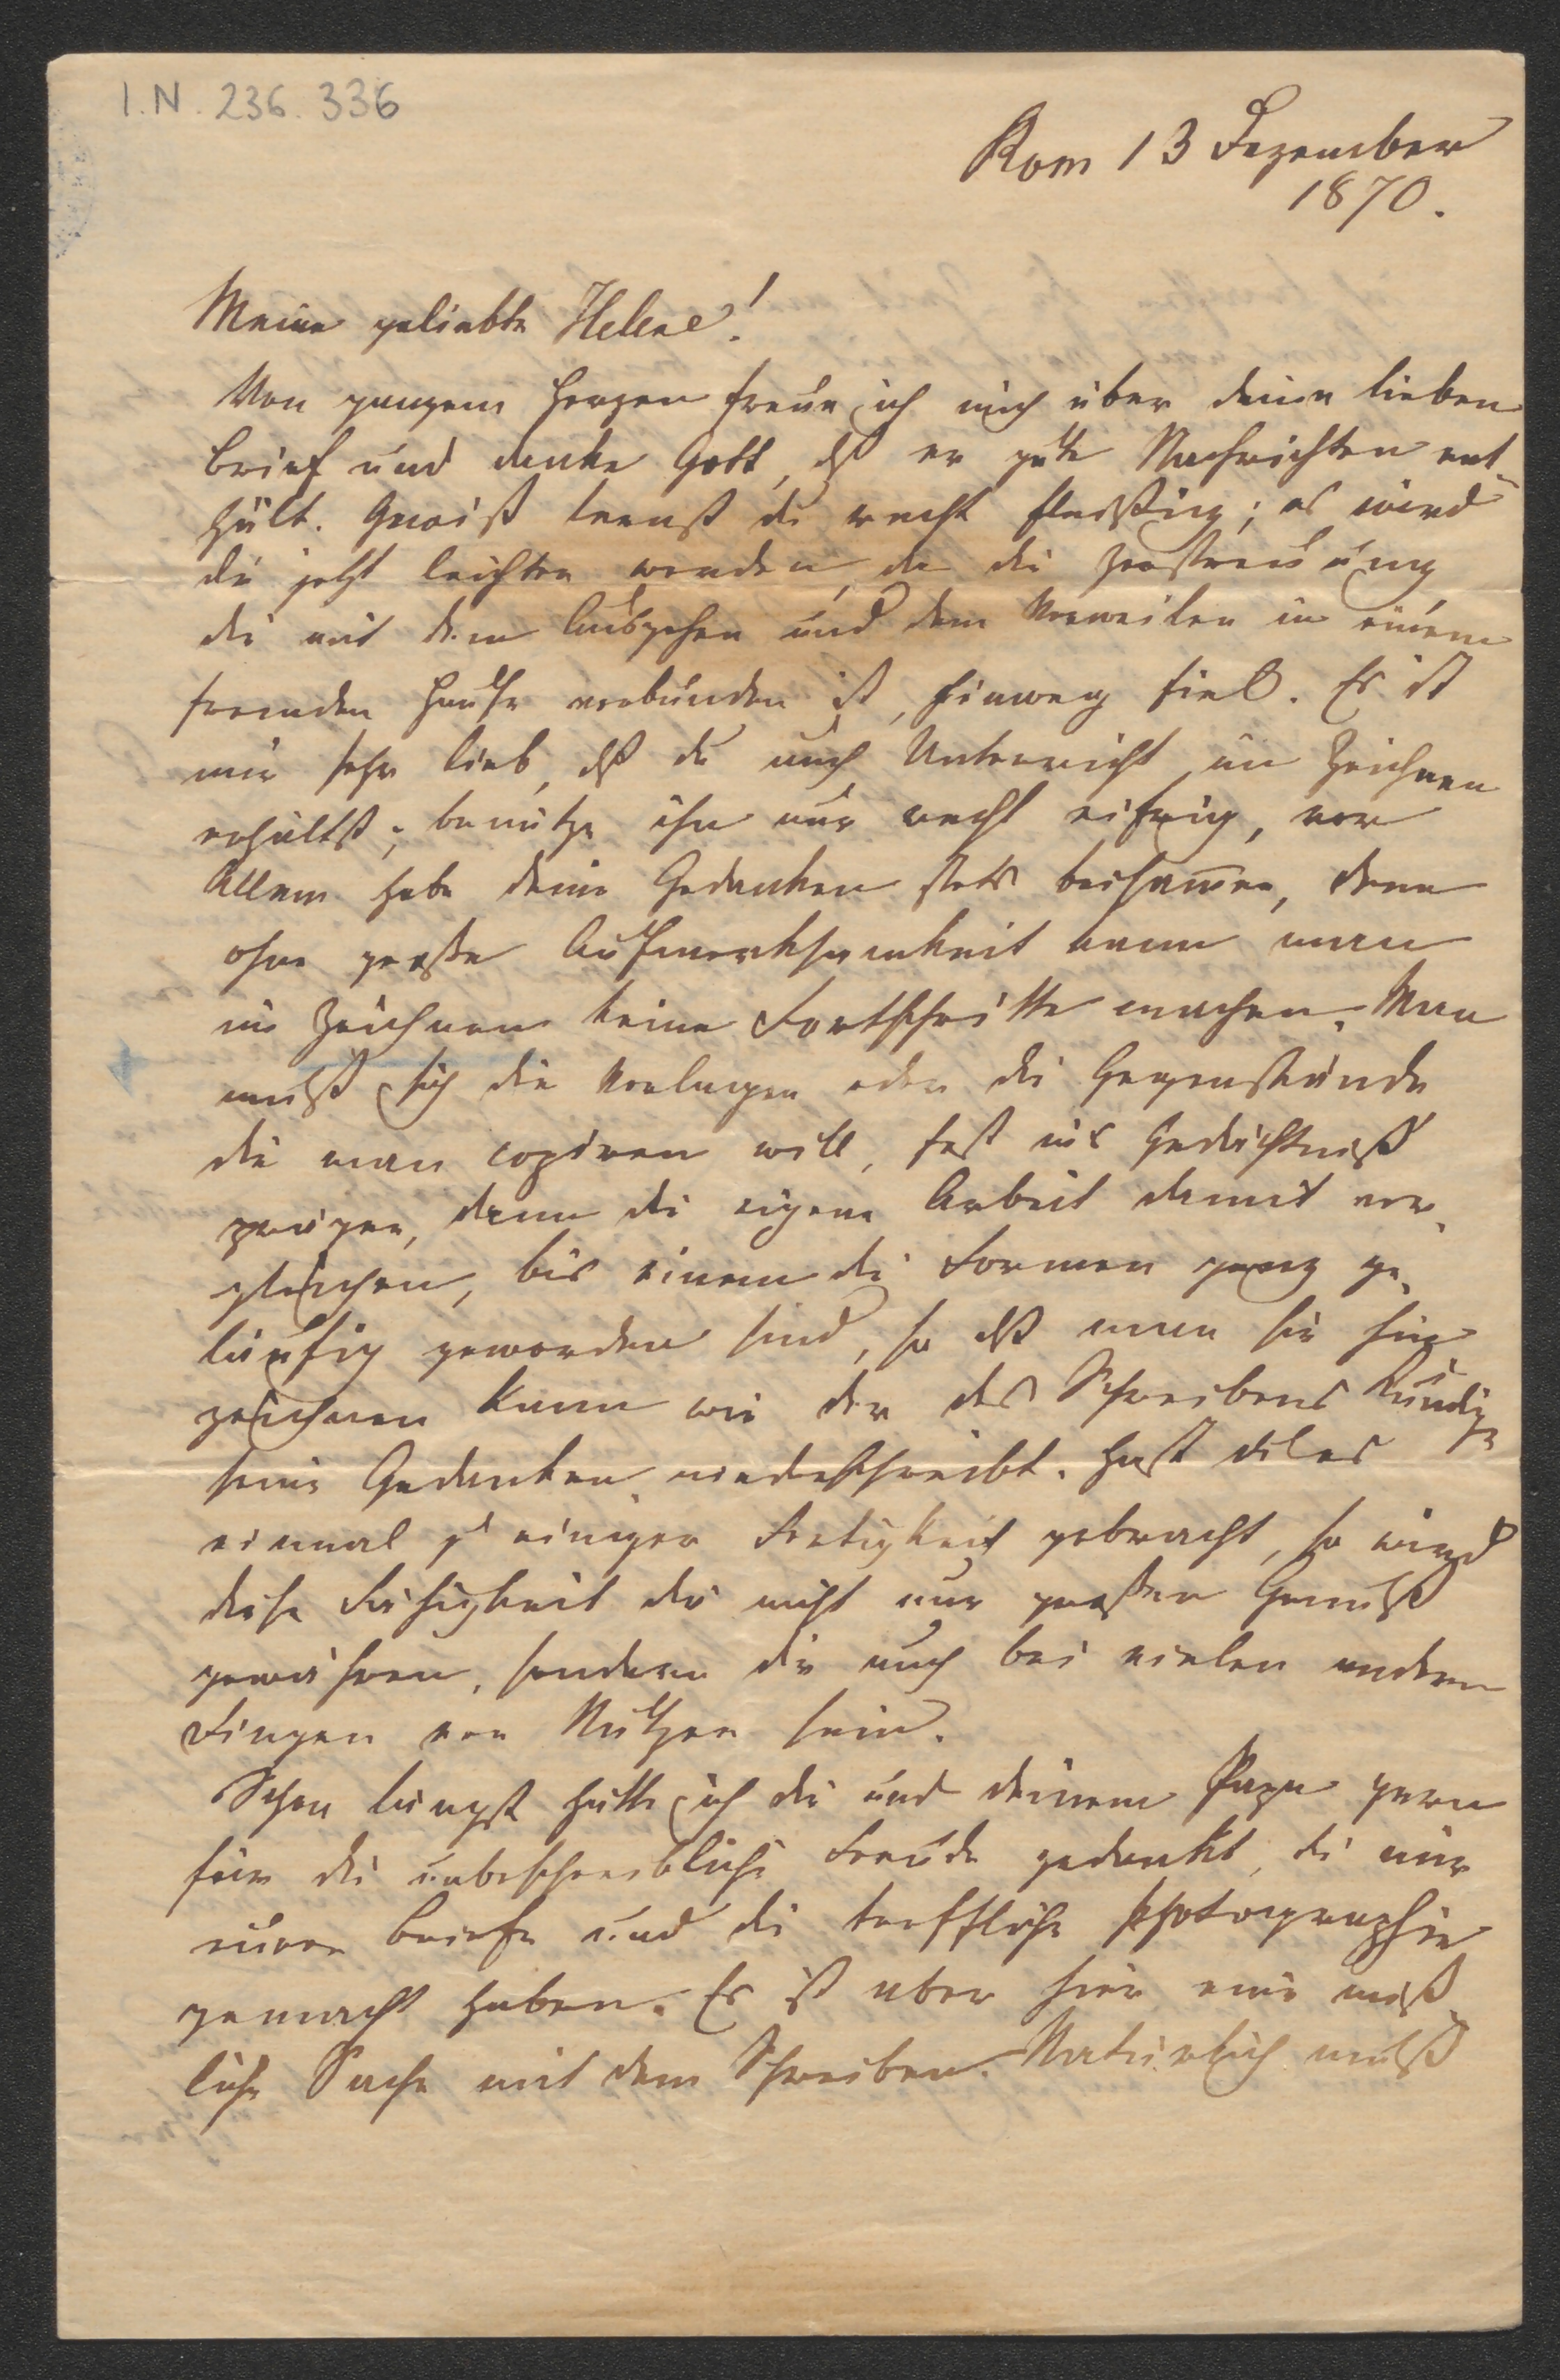 I.N. 236.336
Rom 13 Dezember
1870.
Meine geliebte Helene!
Von ganzem Herzen freue ich mich über deinen lieben
Brief und danke Gott, dß er gute Nachrichten ent-
hält. Gewiß lernst du recht fleißig; es wird
dir jetzt leichter werden, da die Zerstreuung
die mit dem Ausgehen und dem Verweilen in einem
fremden Hause verbunden ist, hinweg fiel. Es ist
mir sehr lieb, dß du auch Unterricht im Zeichnen
erhältst; benütze ihn nur recht eifrig, vor
Allem habe deine Gedanken stets beisam̅en, denn
ohne große Aufmerksamkeit kann man
im Zeichnen keine Fortschritte machen. Man
muß sich die Vorlagen oder die Gegenstände
die man copiren will, fest ins Gedächtniß
prägen, dann die eigene Arbeit damit ver-
gleichen, bis einem die Formen ganz ge-
läufig geworden sind, so dß man sie hin
zeichnen kann wie der des Schreibens Kundige
seine Gedanken niederschreibt. Hast du es
einmal zu einiger Fertigkeit gebracht, so wird
diese Fähigkeit dir nicht nur großen Genuß
gewähren, sondern dir auch bei vielen andern
Dingen von Nutzen sein.
Schon längst hätte ich dir und deinem Papa gern
für die unbeschreibliche Freude gedankt, die mir
eure Briefe und die treffliche Photographie
gemacht haben. Es ist aber hier eine miß-
liche Sache mit dem Schreiben. Natürlich muß